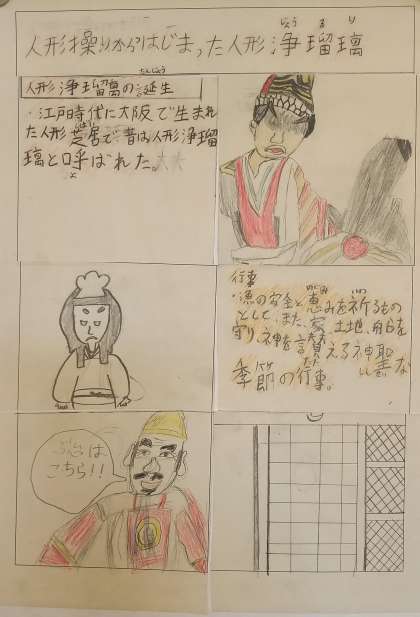 人形操りからはじまった人形浄瑠璃
じょうるり
たんじょう
人形浄瑠璃の誕生
・江戸時代に大阪で生まれ
た人形芝居で、昔は人形浄瑠
璃と呼ばれた。
行事
・漁の安全と恵みを祈るもの
として、また、家、土地、船を
守り、神を讃える神聖な
季節の行事。
は
こちら!!